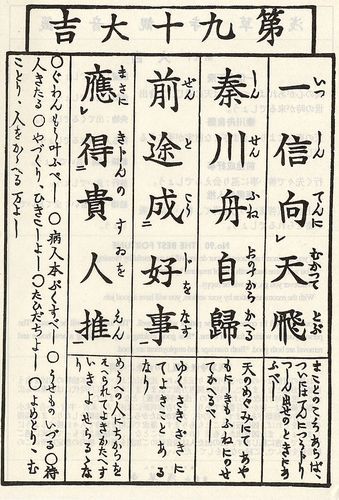 第九十大吉
一信向天飛
いつ しん てんに むかつて とぶ
まことのこころあらば、
ついには万につうたり
ふべし
秦川舟自歸
しん せん ふね おのづから かへる
天のめぐみにてあや
もにしきもふねにのせ
てかへるべし
前途成好事
ぜん と こう じを なす
ゆくさきざきに
てよきことある
なり
應得貴人推
まさに きじんの すおを えん
めうへの人にちからを
そへられてよきかたへす
いきよせらるるなり
○ぐわんもう叶ふべし ○病人本ぷくすべし ○うせものいづる ○待
人きたる ○やづくり、ひきこしよし ○たびだちよし ○よめとり、む
ことり、人をかゝへる万よし